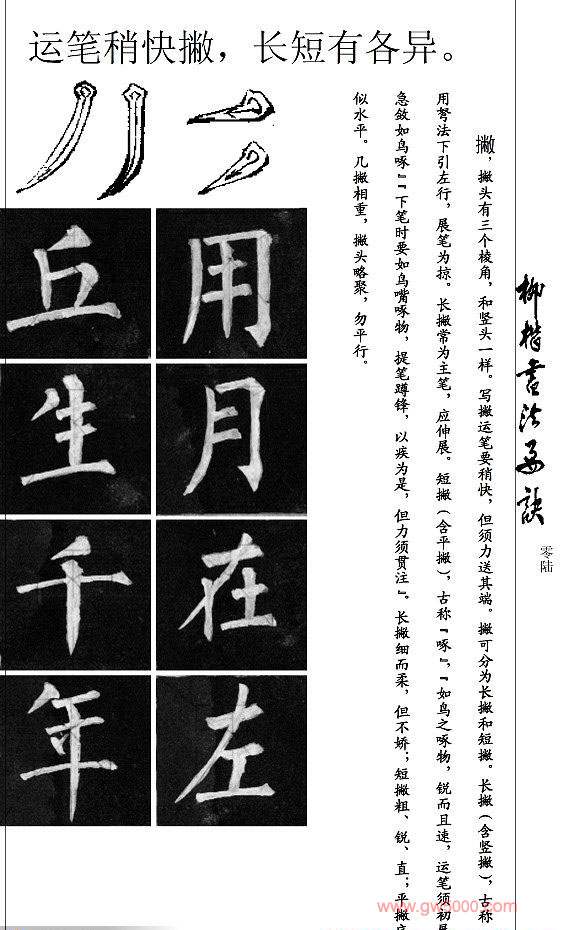 运笔稍快撇，长短有各异。
柳楷書法要訣
零陆
撇，撇头有三个棱角，和竖头一样。写撇运笔要稍快，但须力送其端。撇可分为长撇和短撇。长撇(含竖撇)，古称
用弩法下引左行，展笔为掠。长撇常为主笔，应伸展。短撇(含平撇)，古称『啄』，『如鸟之啄物，锐而且速，运笔须初展
急敛如鸟啄』『下笔时要如鸟嘴啄物，提笔蹲锋，以疾为是，但力须贯注』。长撇细而柔，但不娇；短撇粗、锐、直；平撇
似水平。几撇相重，撇头略聚，勿平行。
用
月
在
左
丘
生
千
年